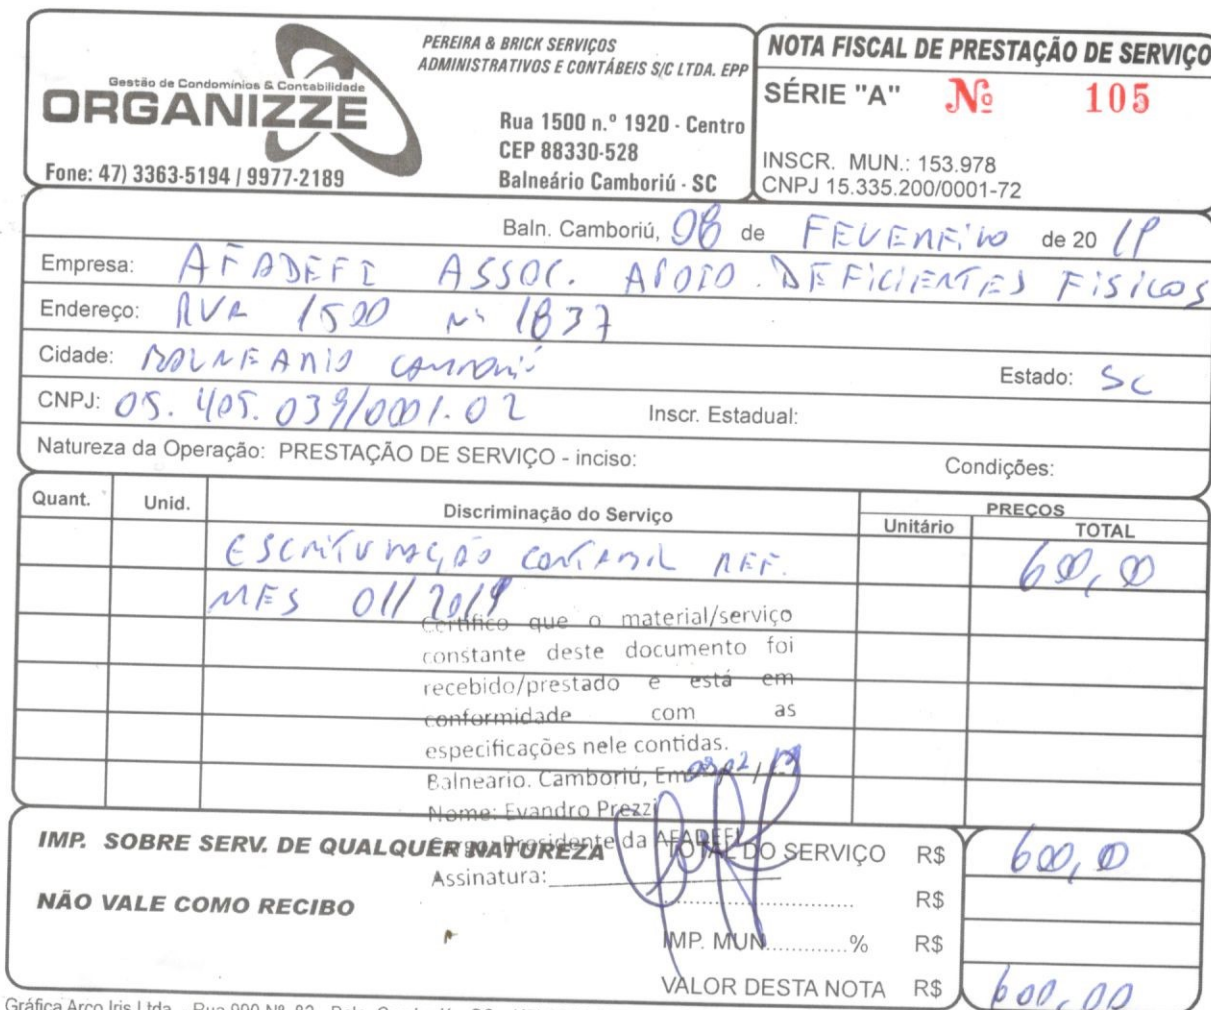 PEREIRA & BRICK SERVIÇOS
ADMINISTRATIVOS E CONTÁBEIS S/C LTDA. EPP
Gestão de Condomínios & Contabilidade
ORGANIZZE
Fone: 47) 3363-5194 / 9977-2189
Rua 1500 n.º 1920 - Centro
CEP 88330-528
Balneário Camboriú - SC
NOTA FISCAL DE PRESTAÇÃO DE SERVIÇO
SÉRIE "A" Nº 105
INSCR. MUN.: 153.978
CNPJ 15.335.200/0001-72
Baln. Camboriú, 08 de FEVEREIRO de 20 19
Empresa: AFADEFI ASSOC. APOIO. DEFICIENTES FISICOS
Endereço: RUA 1500 Nº 1837
Cidade: BALNEARIO CAMBORIÚ Estado: SC
CNPJ: 05.405.039/0001.02 Inscr. Estadual:
Natureza da Operação: PRESTAÇÃO DE SERVIÇO - inciso: Condições:
Quant. Unid. Discriminação do Serviço PREÇOS
Unitário TOTAL
ESCRITURAÇÃO CONTABIL REF. 600,00
MES 01/2019
Certifico que o material/serviço
constante deste documento foi
recebido/prestado e está em
conformidade com as
especificações nele contidas.
Balneario. Camboriú, Em 08/02/19
Nome: Evandro Prezzi
Cargo: Presidente da AFADEFI
Assinatura:
IMP. SOBRE SERV. DE QUALQUER NATUREZA
NÃO VALE COMO RECIBO
TOTAL DO SERVIÇO R$ 600,00
R$
IMP. MUN.............% R$
VALOR DESTA NOTA R$ 600,00
Gráfica Arco Iris Ltda.